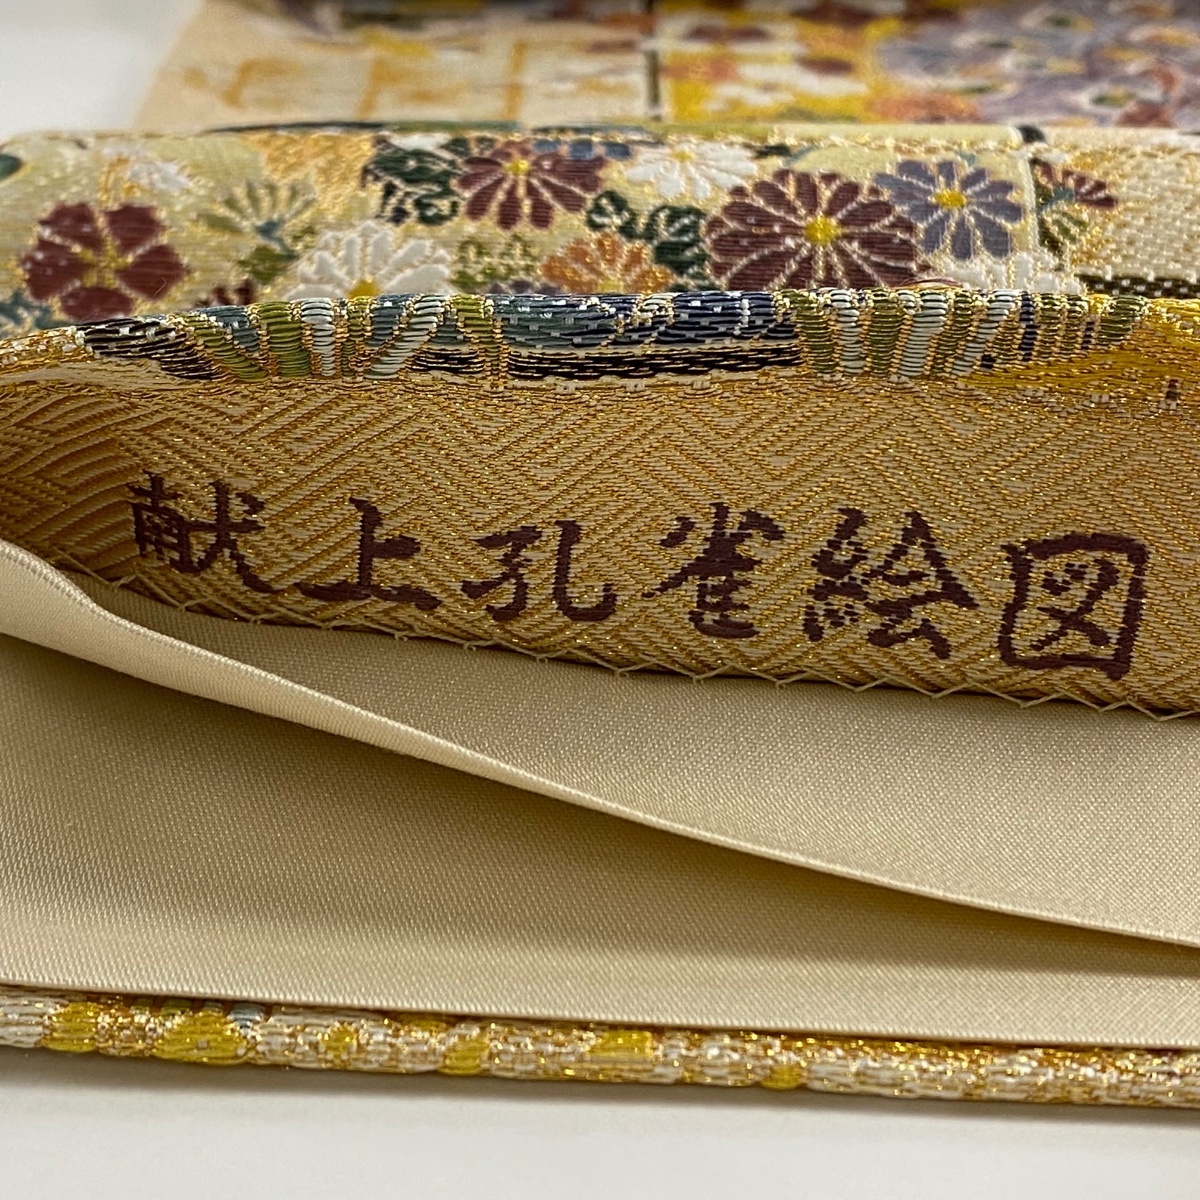 献上孔雀絵図